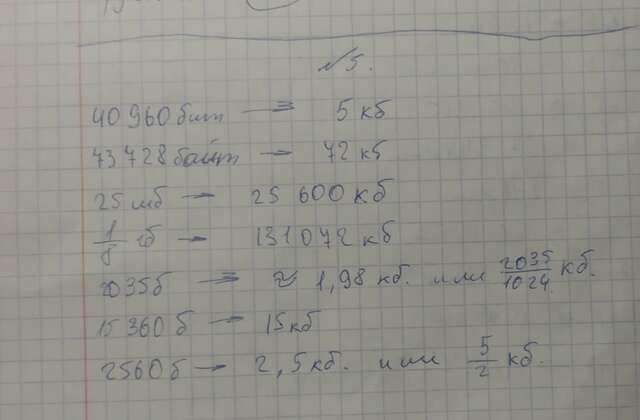 №5.
40960 бит → 5 кб
73 728 байт → 72 кб
25 мб → 25 600 кб
1/8 гб → 131 072 кб
2035б → ≈ 1,98 кб. или 2035/1024 кб.
15 360 б → 15 кб
2560 б → 2,5 кб. или 5/2 кб.